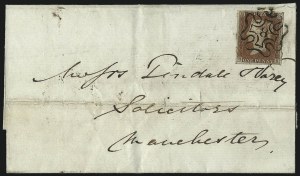 Messrs Tindale & Varey
Solicitors
Manchester